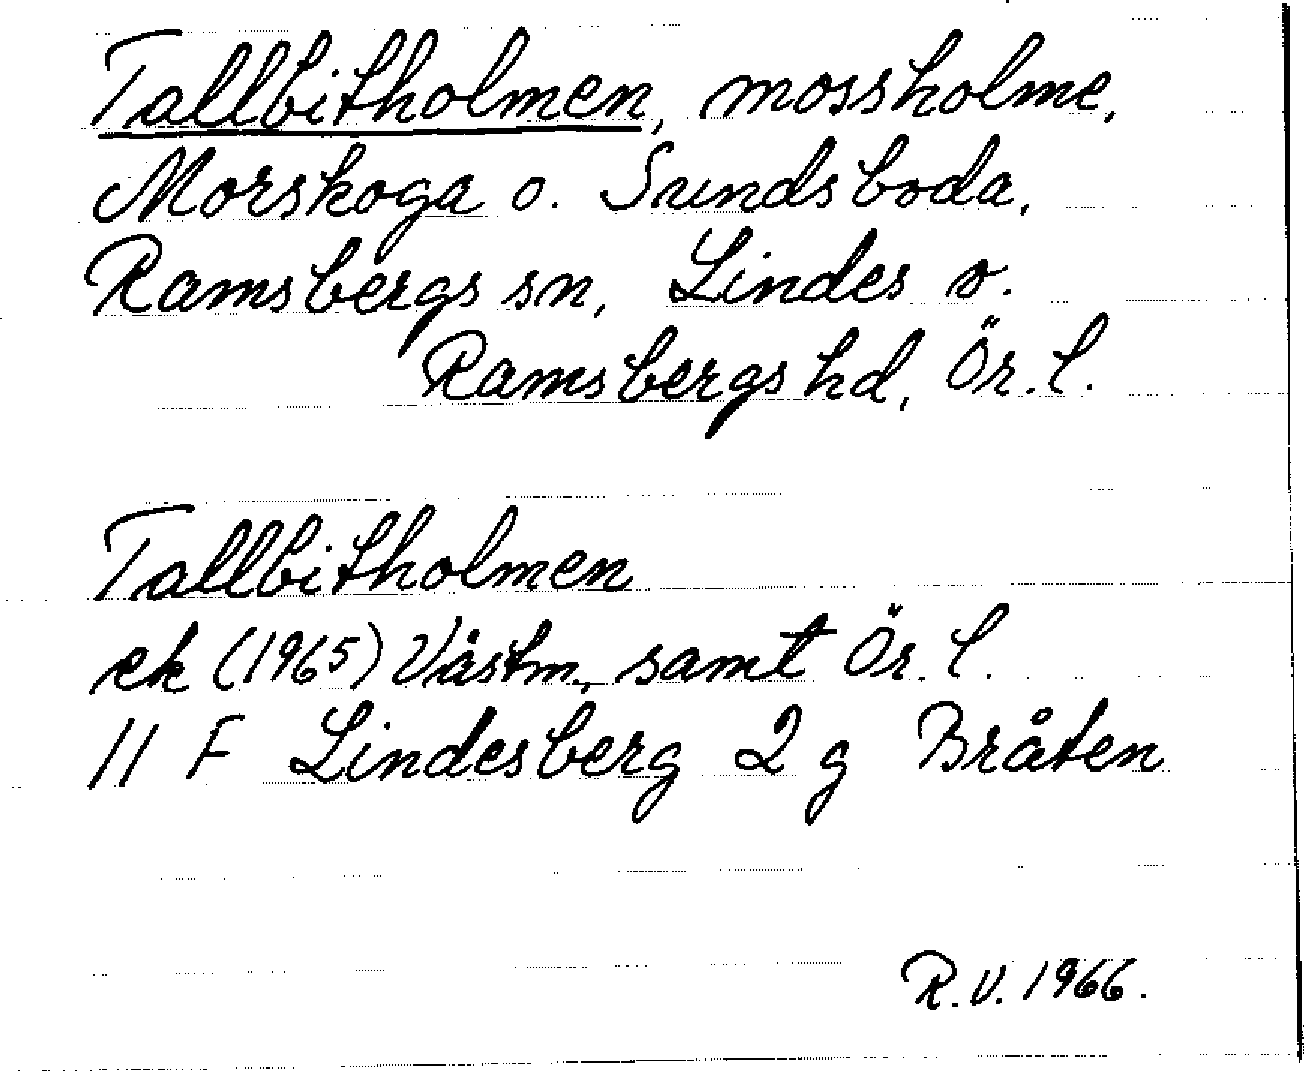 Tallbitholmen, mossholme,
Morskoga o. Sundsboda,
Ramsbergs sn, Lindes o.
Ramsbergs hd, Ör. l.
Tallbitholmen
ek (1965) Västm. samt Ör. l.
11 F Lindesberg 2 g Bråten
R.V. 1966.